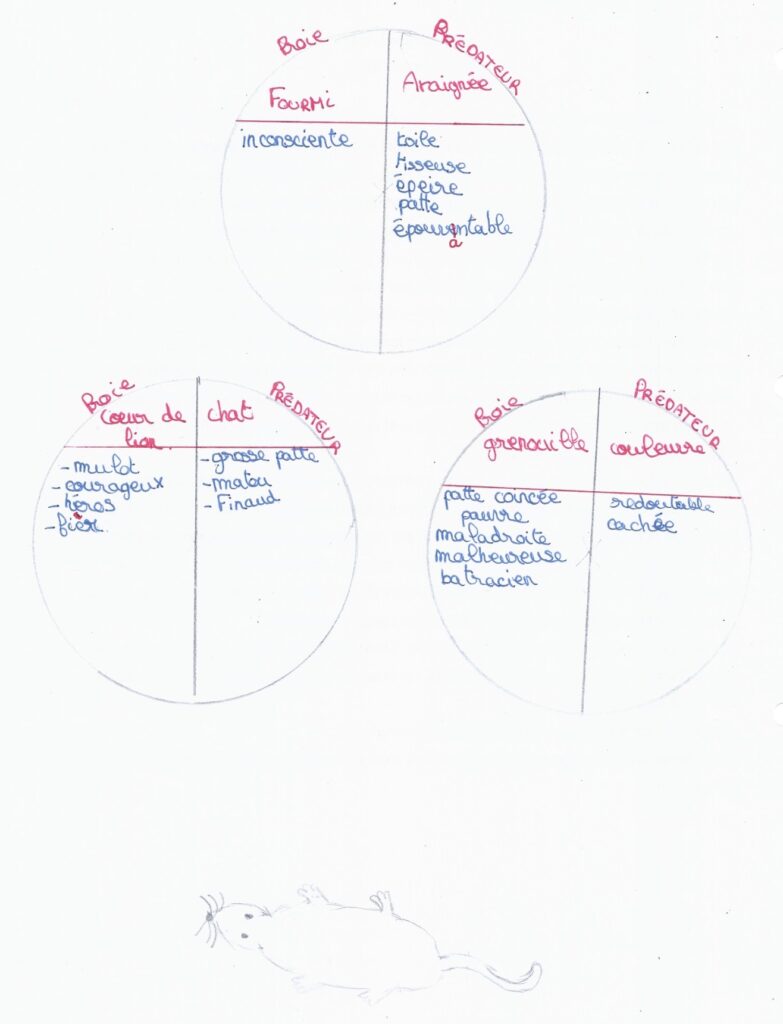 Proie
PRÉDATEUR
FOURMI
Araignée
inconsciente
toile
tisseuse
épeire
patte
épouventable
a
Proie
PRÉDATEUR
Coeur de
lion
chat
- mulot
- courageux
- héros
- fier
- grosse patte
- matou
- Finaud
Proie
PRÉDATEUR
grenouille
couleuvre
patte coincée
pauvre
maladroite
malheureuse
batracien
redoutable
cachée